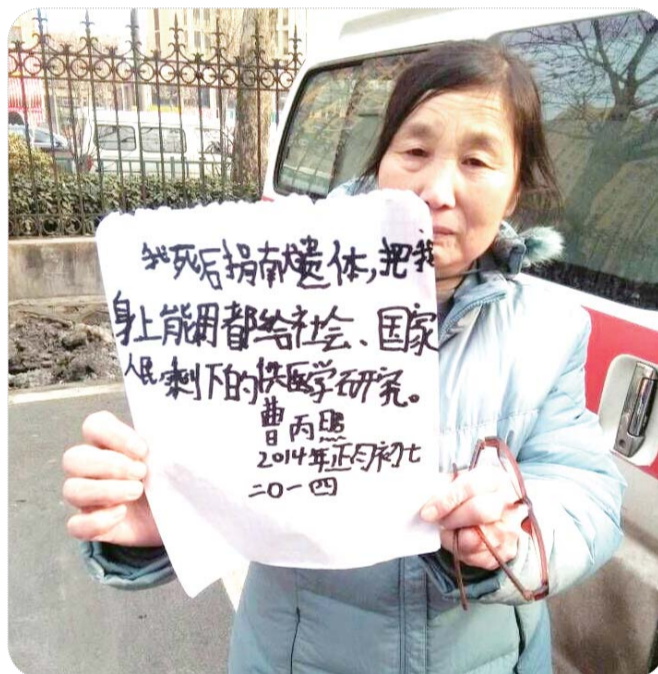 我死后捐献遗体,把我
身上能用都给社会、国家
人民.剩下的供医学研究。
曹丙照
2014年正月初七
二〇一四